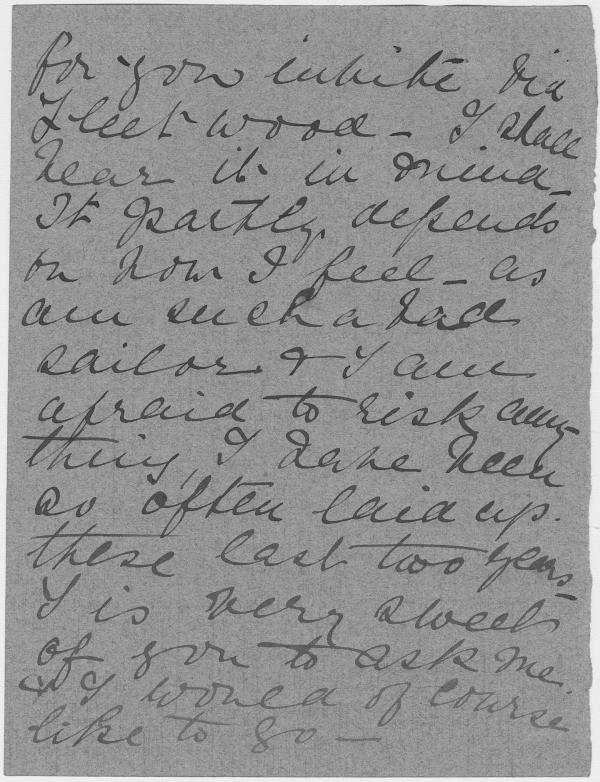 for you white via
Fleetwood - I shall
bear it in mind -
It partly depends
on how I feel - as
am such a bad
sailor & I am
afraid to risk any-
thing, I have been
so often laid up
these last two years -
I is very sweet
of you to ask me.
& I would of course
like to go -